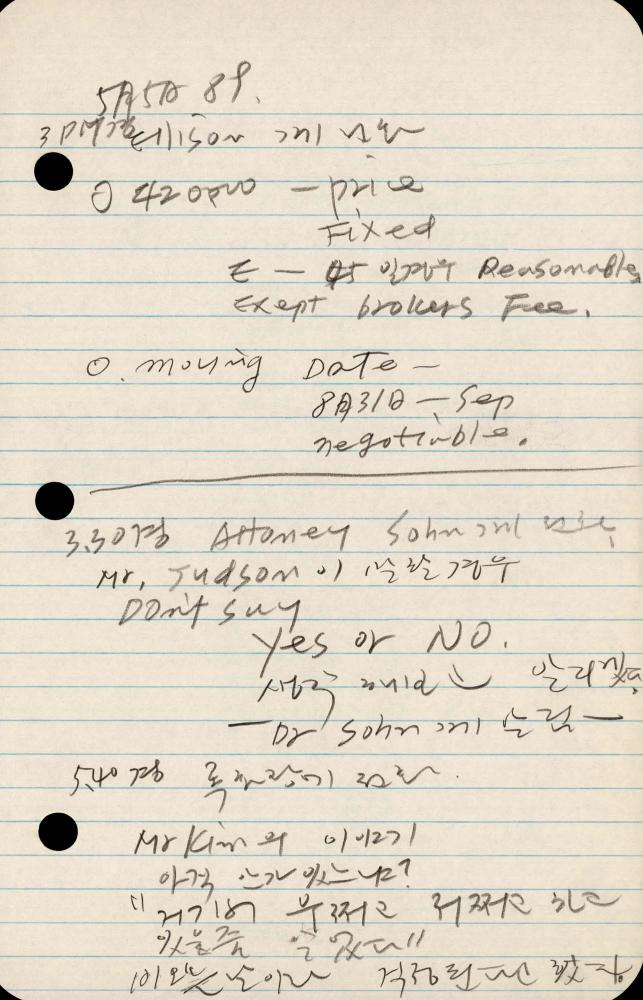 5月5日 89.
3PM경 Ellison 께 전화
○ 420000 — price
Fixed
E — 45일경우 Reasonable,
Exept brokers Fee.
○. moving Date —
8月31日 — Sep
negotiable.
3.30경 Attoney Sohn 께 전화
Mr. Judson 이 말할경우
DOn't say
Yes or NO.
생각 해보고 알리겠다
— Dr Sohn 께
5.40경 전화.
Mr Kim 의 이야기
아직 안가 있느냐?
"거기서 우쩌고 저쩌고 하고
있을줄 알았다"
걱정된다고 했음